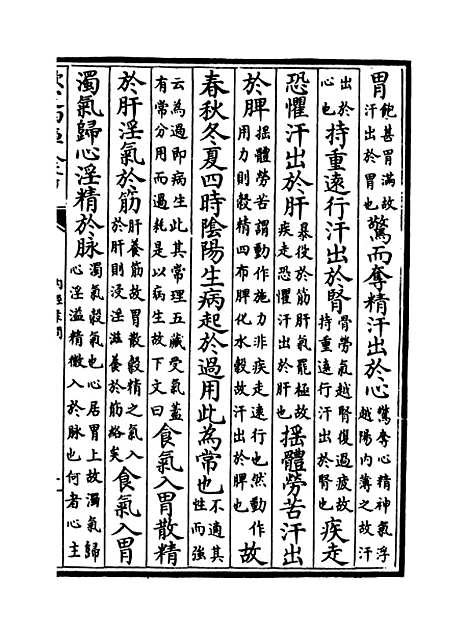 胃飽甚胃滿故汗出於胃也驚而奪精汗出於心驚奪心精神氣浮越陽内薄之故汗
出於心也持重遠行汗出於腎骨勞氣越腎復過疲故持重遠行汗出於腎也疾走
恐懼汗出於肝暴役於筋肝氣罷極故疾走恐懼汗出於肝也搖體勞苦汗出
於脾搖體勞苦謂動作施力非疾走遠行也然動作用力則穀精四布脾化水穀故汗出於脾也故
春秋冬夏四時陰陽生病起於過用此為常也不適其性而強
云為過即病生此其常理五藏受氣蓋有常分用而過耗是以病生故下文曰食氣入胃散精
於肝淫氣於筋肝養筋故胃散穀精之氣入於肝則浸淫滋養於筋絡矣食氣入胃
濁氣歸心淫精於脉濁氣穀氣也心居胃上故濁氣歸心淫溢精微入於脉也何者心主